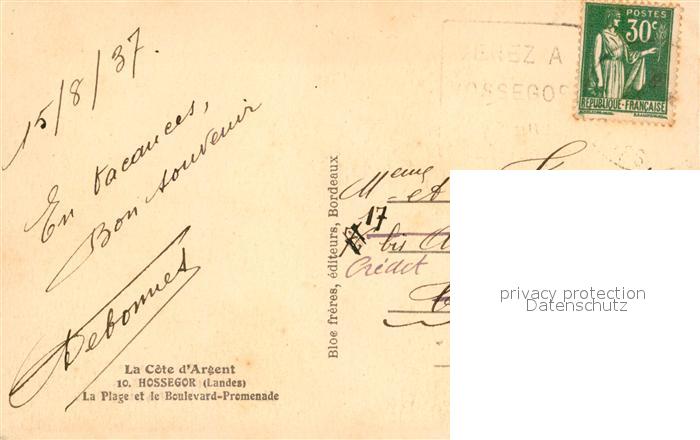 15/8/37.
En vacances,
Bon souvenir
Debonnet
La Côte d'Argent
10. HOSSEGOR (Landes)
La Plage et le Boulevard-Promenade
Bloc frères, éditeurs, Bordeaux
VENEZ A
HOSSEGOR
POSTES
30c
RÉPUBLIQUE-FRANÇAISE
Meme et
17
bis
Crédit
privacy protection
Datenschutz